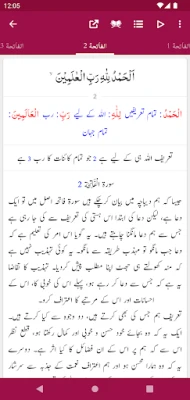 12:05
الفاتحة 1
الفاتحة 2
الفاتحة 3
اَلْحَمْدُ لِلّٰهِ رَبِّ الْعٰلَمِيْنَ
2
اَلْحَمْدُ: تمام تعریفیں لِلّٰهِ: اللہ کے لیے رَبِّ: رب الْعَالَمِيْنَ:
تمام جہان
تعریف اللہ ہی کے لیے ہے 2 جو تمام کائنات کا رب 3 ہے
سورة الفاتحة 2
جیسا کہ ہم دیباچہ میں بیان کرچکے ہیں، سورہ فاتحہ اصل میں تو ایک
دعا ہے، لیکن دعا کی ابتدا اس ہستی کی تعریف سے کی جا رہی ہے
جس سے ہم دعا مانگنا چاہتے ہیں۔ یہ گویا اس امر کی تعلیم ہے کہ
دعا جب مانگو تو مہذب طریقہ سے مانگو۔ یہ کوئی تہذیب نہیں ہے
کہ منہ کھولتے ہی جھٹ اپنا مطلب پیش کردیا۔ تہذیب کا تقاضا
یہ ہے کہ جس سے دعا کر رہے ہو، پہلے اس کی خوبی کا، اس کے
احسانات اور اس کے مرتبے کا اعتراف کرو۔
تعریف ہم جس کی بھی کرتے ہیں، دو وجوہ سے کیا کرتے ہیں۔
ایک یہ کہ وہ بجائے خود حسن و خوبی اور کمال رکھتا ہو، قطع نظر
اس سے کہ ہم پر اس کے ان فضائل کا کیا اثر ہے۔ دوسرے
یہ کہ وہ ہمارا محسن ہو اور ہم اعتراف نعمت کے جذبہ سے سرشار